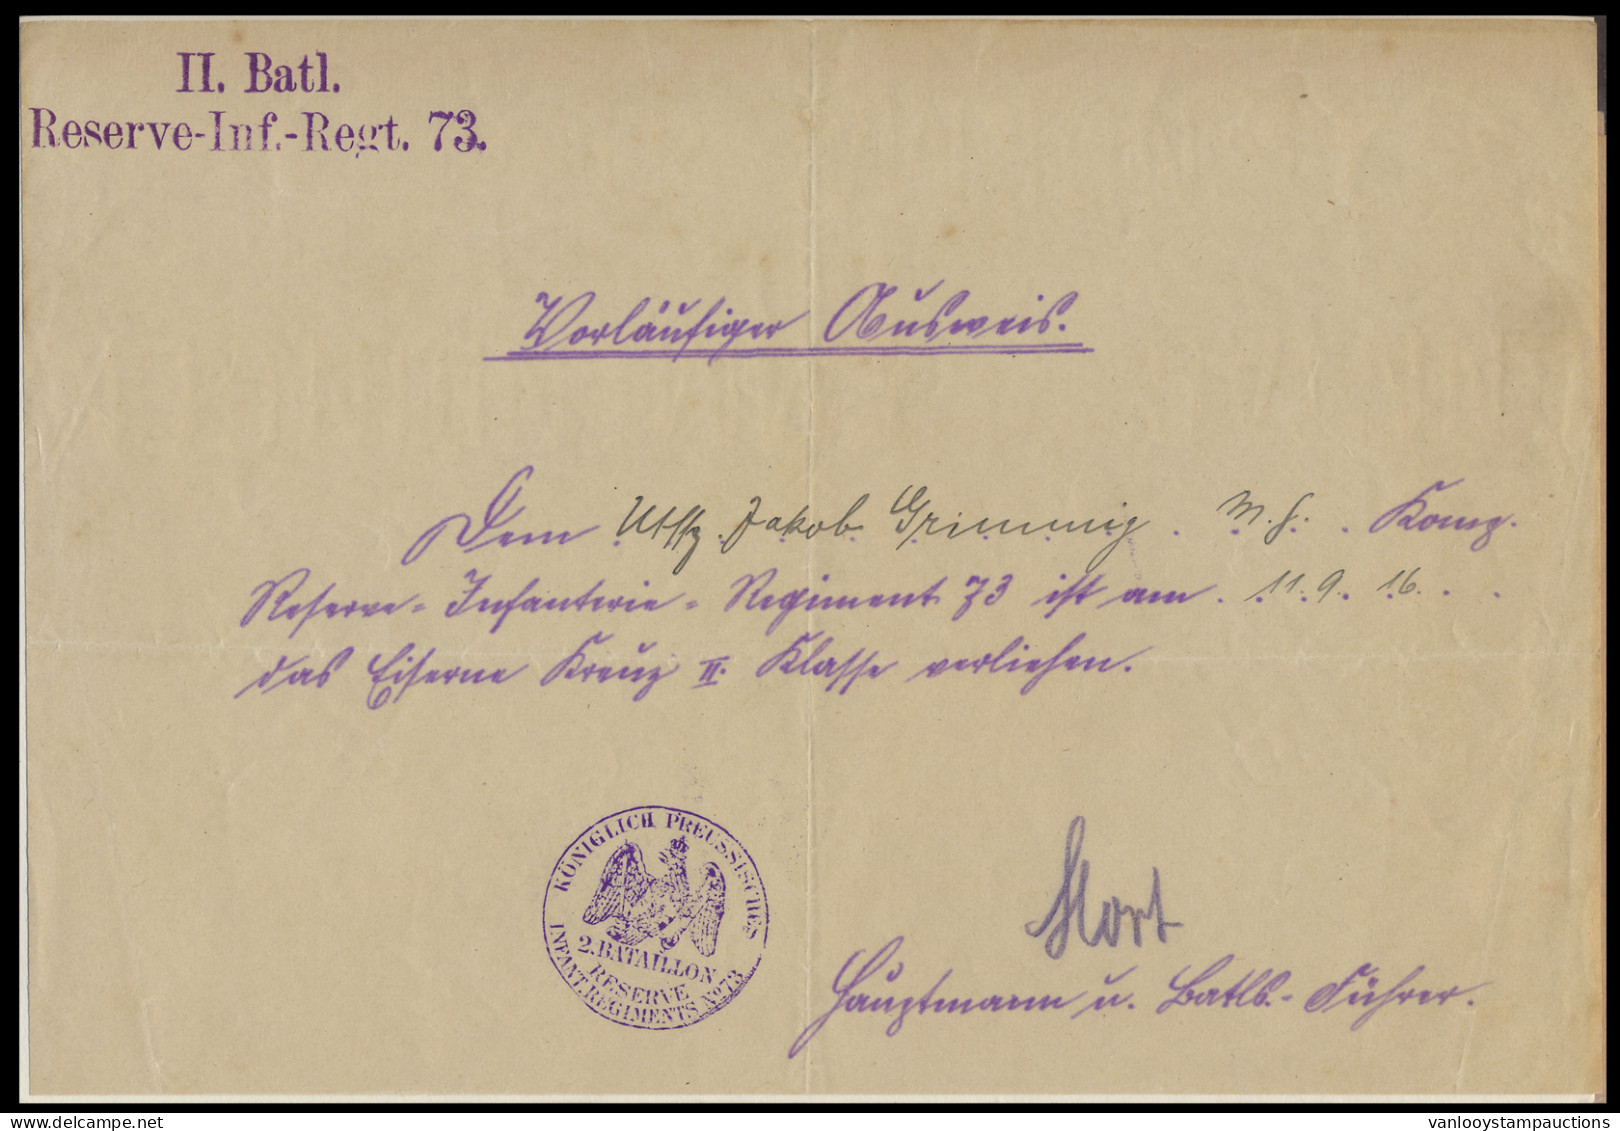 II. Batl.
Reserve-Inf.-Regt. 73.
Vorläufiger Ausweis.
Dem Utffz. Jakob Grimmig . M.G. . Komp.
Reserve-Infanterie-Regiment 73 ist am . 11. 9. 16. . .
das Eiserne Kreuz II. Klasse verliehen.
KÖNIGLICH PREUSSISCHES
2. BATAILLON
RESERVE
INFANT. REGIMENTS No 73
Hauptmann u. Batls.-Führer.
vanlooystampauctions